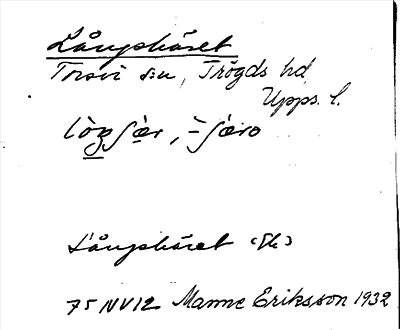 Långskäret
Torsvi sn, Trögds hd,
Upps. l.
Långskäret (Ek)
75 NV12 Manne Eriksson 1932